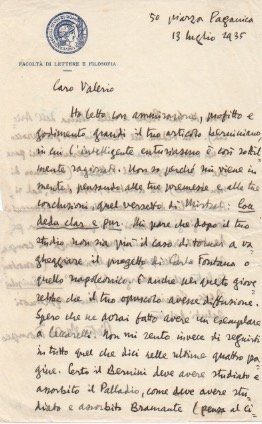 50 piazza Paganica
13 luglio 1935
FACOLTÀ DI LETTERE E FILOSOFIA
Caro Valerio
Ho letto con ammirazione, profitto e
godimento grandi il tuo articolo berniniano
in cui l'intelligente entusiasmo è così sottil-
mente ragionato. Non so perché mi viene in
mente, pensando alle tue premesse e alle tue
conclusioni, quel versetto di Mistral:
clar e pur. Mi pare che dopo il tuo
studio non sia più il caso di tornare a va
gheggiare il progetto di Carlo Fontana o
quello napoleonico. E anche per questo giove
rebbe che il tuo opuscolo avesse diffusione.
Spero che ne avrai fatto avere un esemplare
a Ceccarelli. Non mi sento invece di seguirti
in tutto quel che dici nelle ultime quattro pa-
gine. Certo il Bernini deve avere studiato e
assorbito il Palladio, come deve avere stu-
diato e assorbito Bramante (pensa al ci